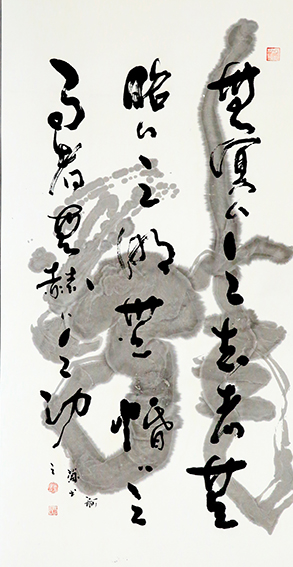 無冥々之志者無
昭々之明無惛々之
事者無赫々之功